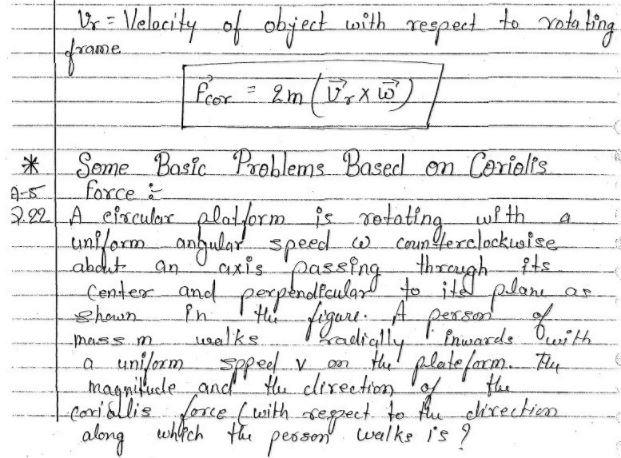 Vr = Velocity of object with respect to rotating
frame
F⃗cor = 2m (V⃗r x ω⃗)
* Some Basic Problems Based on Coriolis
A-5 force :-
Q.22 A circular platform is rotating with a
uniform angular speed ω counterclockwise
about an axis passing through its
Center and perpendicular to its plane as
shown in the figure. A person of
mass m walks radially inwards with
a uniform sppeed v on the plateform. The
magnitude and the direction of the
coriolis force (with respect to the direction
along which the person walks is ?